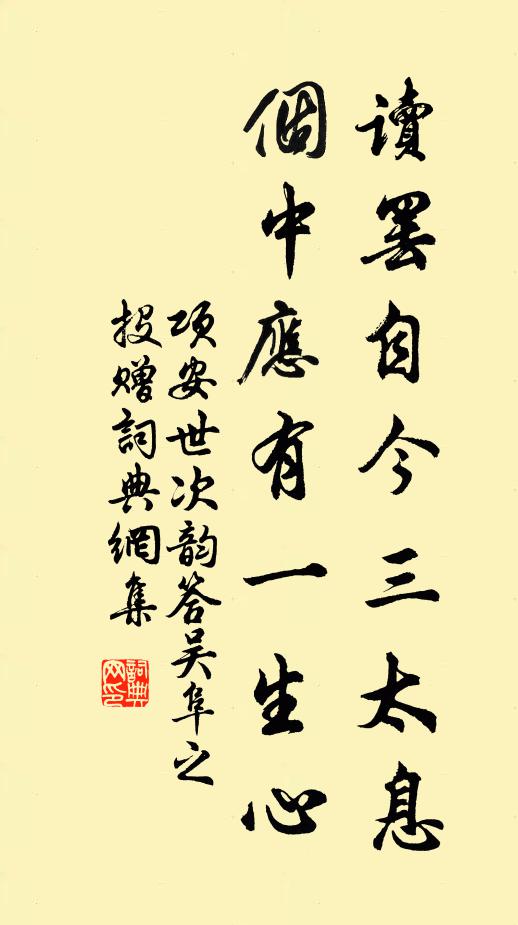 讀罷自今三太息
個中應有一生心
項安世次韵答吴阜之
投贈詞典網集
詞典网印